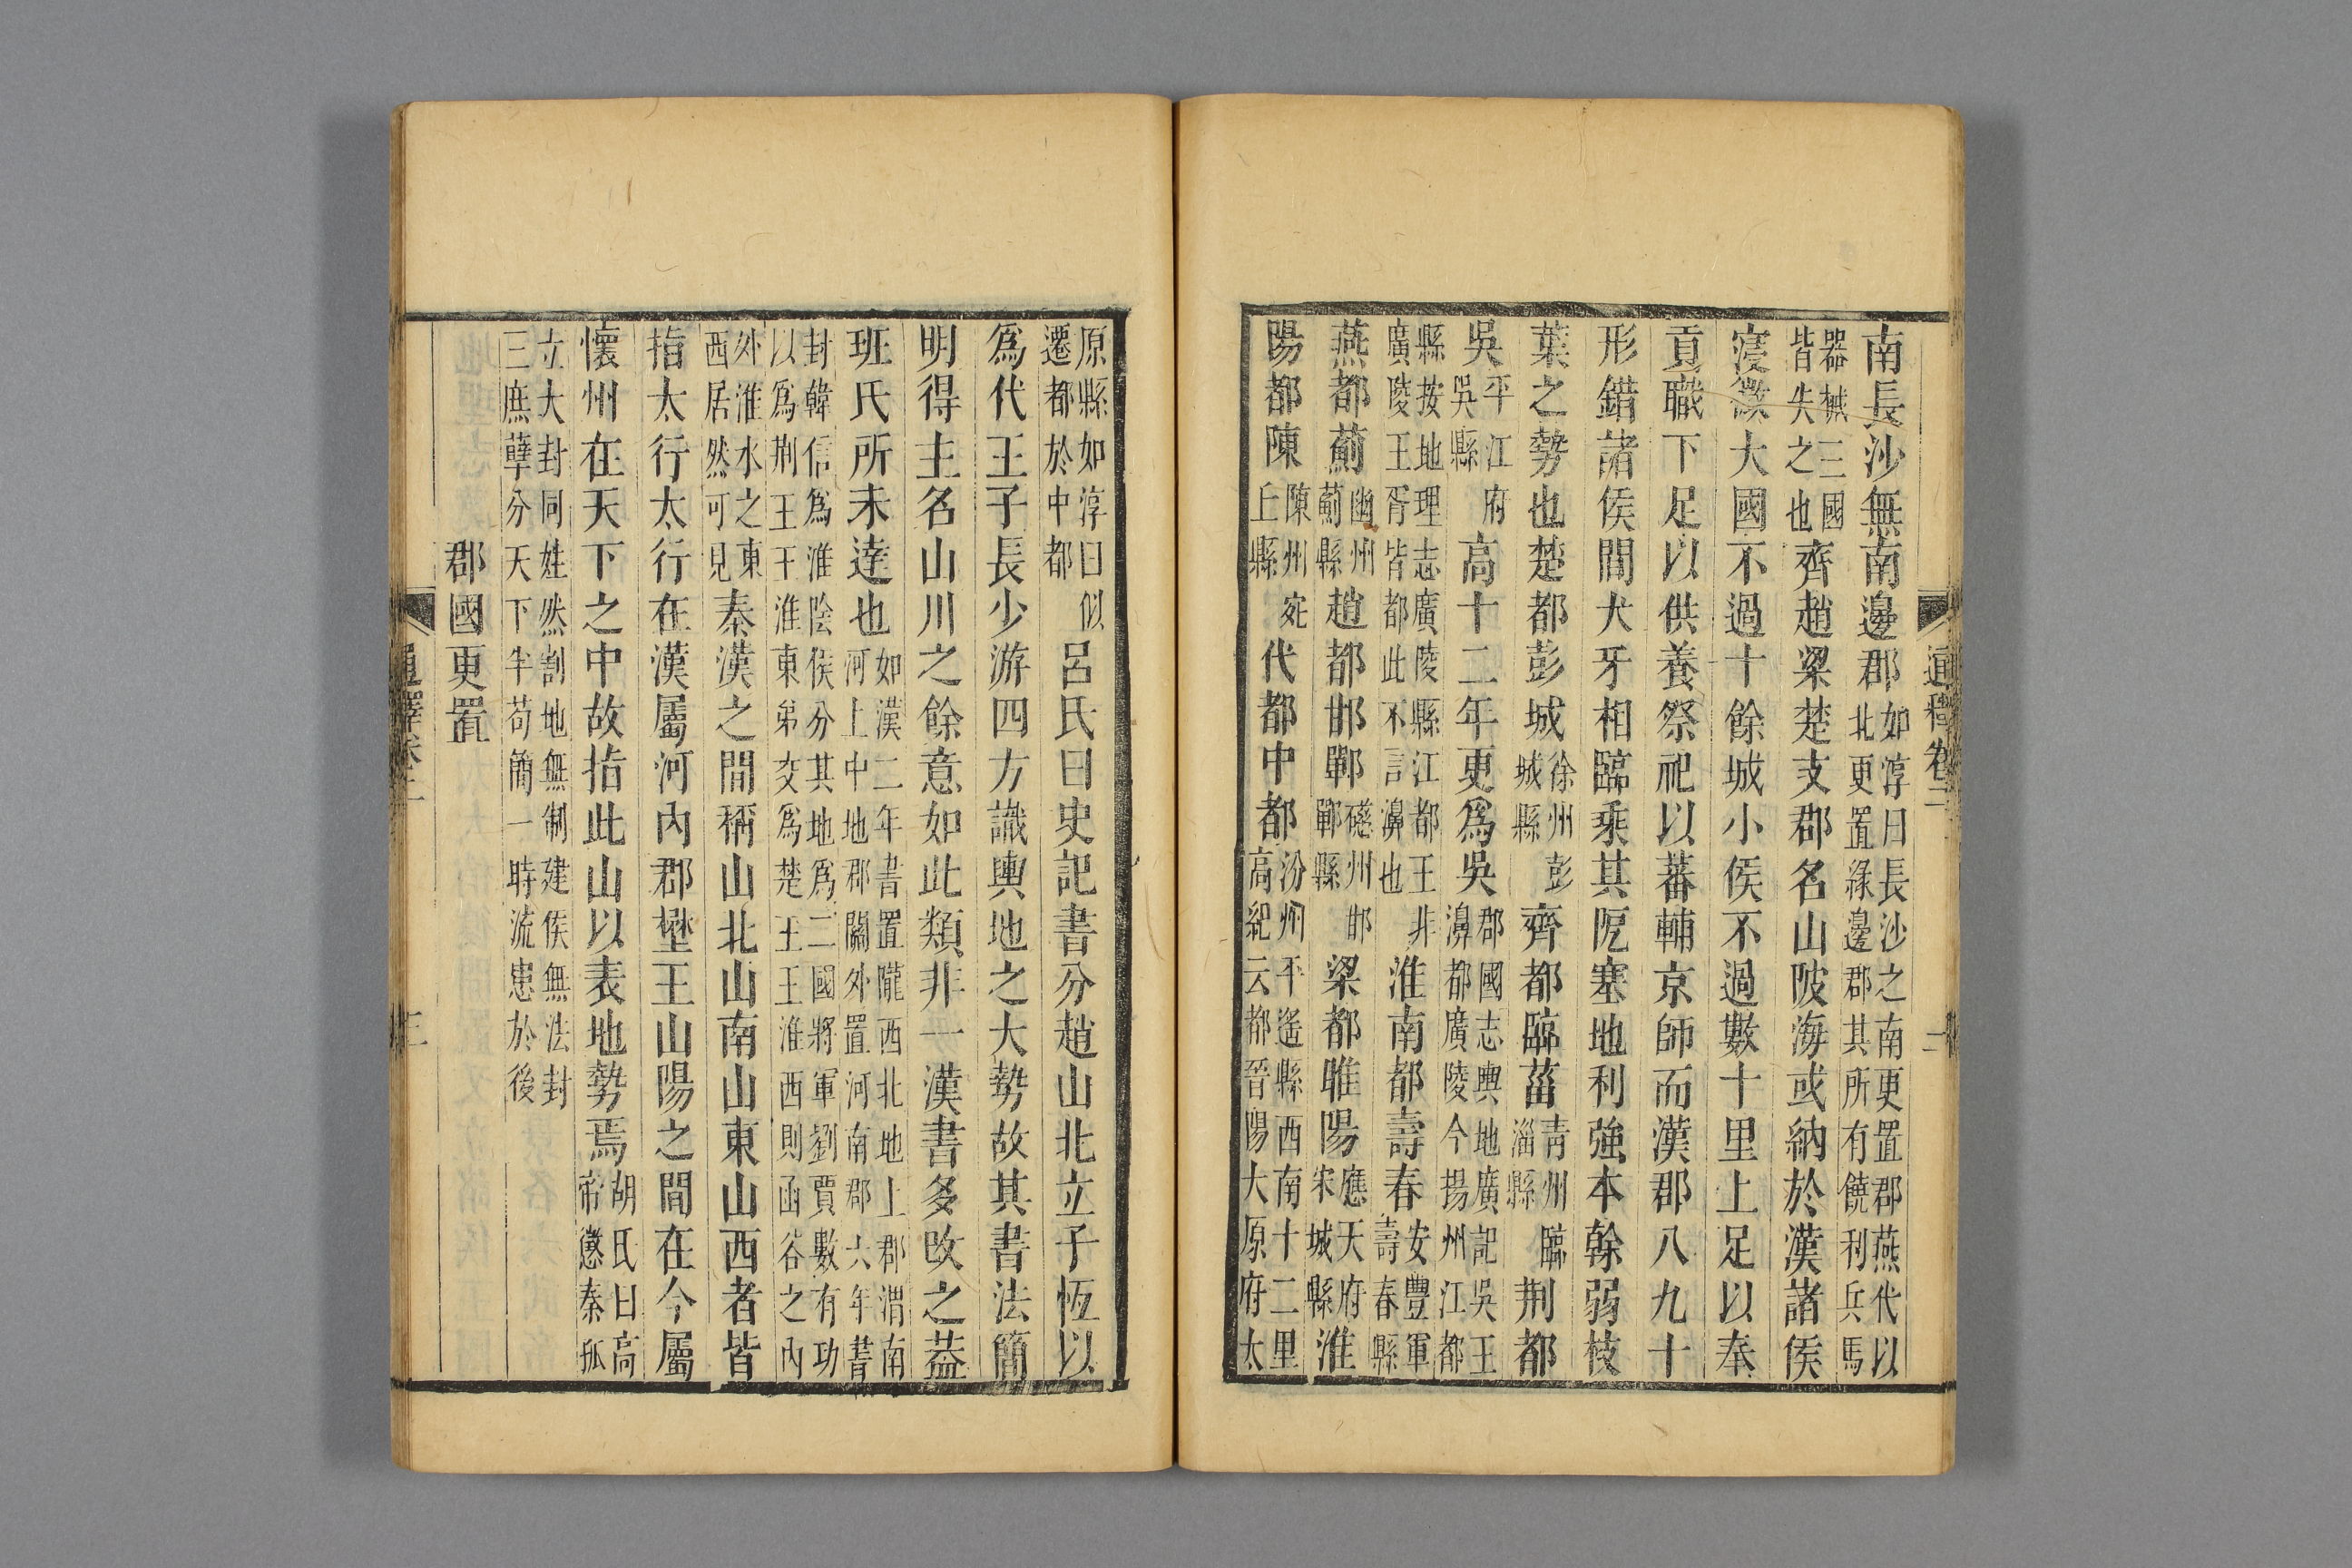 通釋卷二
二
南長沙無南邊郡如淳曰長沙之南更置郡燕代以
北更置緣邊郡其所有饒利兵馬
器械三國
皆失之也齊趙梁楚支郡名山陂海或納於漢諸侯
寖微大國不過十餘城小侯不過數十里上足以奉
貢職下足以供養祭祀以蕃輔京師而漢郡八九十
形錯諸侯間犬牙相臨秉其阨塞地利強本榦弱枝
葉之勢也楚都彭城徐州彭
城縣齊都臨菑青州臨
淄縣荆都
吳平江府
吳縣高十二年更爲吳郡國志輿地廣記吳王
濞都廣陵今揚州江都
縣按地理志廣陵縣江都王非
廣陵王胥皆都此不言濞也淮南都壽春安豐軍
壽春縣
燕都薊幽州
薊縣趙都邯鄲磁州邯
鄲縣梁都睢陽應天府
宋城縣淮
陽都陳陳州宛
丘縣代都中都汾州平遙縣西南十二里
高紀云都晉陽大原府太
原縣如淳曰似
遷都於中都呂氏曰史記書分趙山北立子恆以
爲代王子長少游四方識輿地之大勢故其書法簡
明得主名山川之餘意如此類非一漢書多改之葢
班氏所未達也如漢二年書置隴西北地上郡渭南
河上中地郡關外置河南郡六年書
封韓信爲淮陰侯分其地爲二國將軍劉賈數有功
以爲荆王王淮東弟交爲楚王王淮西則函谷之內
外淮水之東
西居然可見秦漢之間稱山北山南山東山西者皆
指太行太行在漢屬河內郡壄王山陽之間在今屬
懷州在天下之中故指此山以表地勢焉胡氏曰高
帝懲秦孤
立大封同姓然割地無制建侯無法封
三庶孽分天下半苟簡一時流患於後
郡國更置
通釋卷二
三